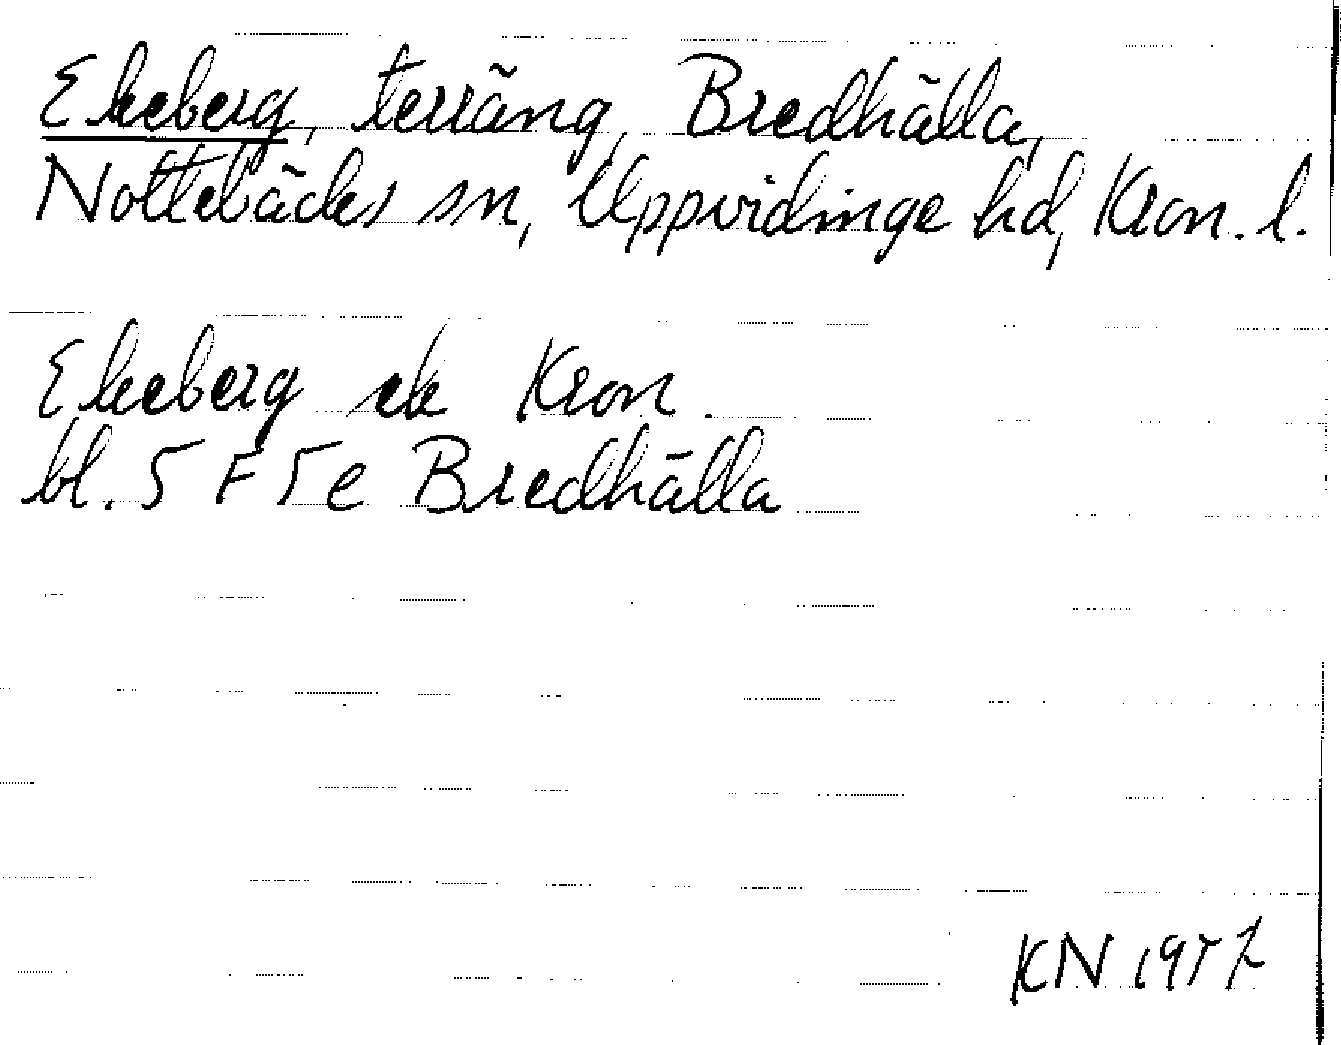 Ekeberg, terräng, Bredhälla,
Nottebäcks sn, Uppvidinge hd, Kron. l.
Ekeberg ek Kron
bl. 5 F 5 e Bredhälla
KN 1957